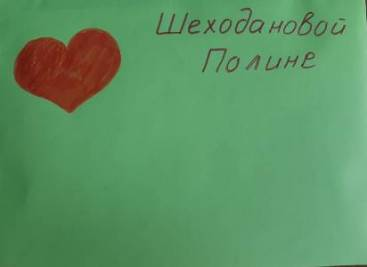 Шеходановой
Полине